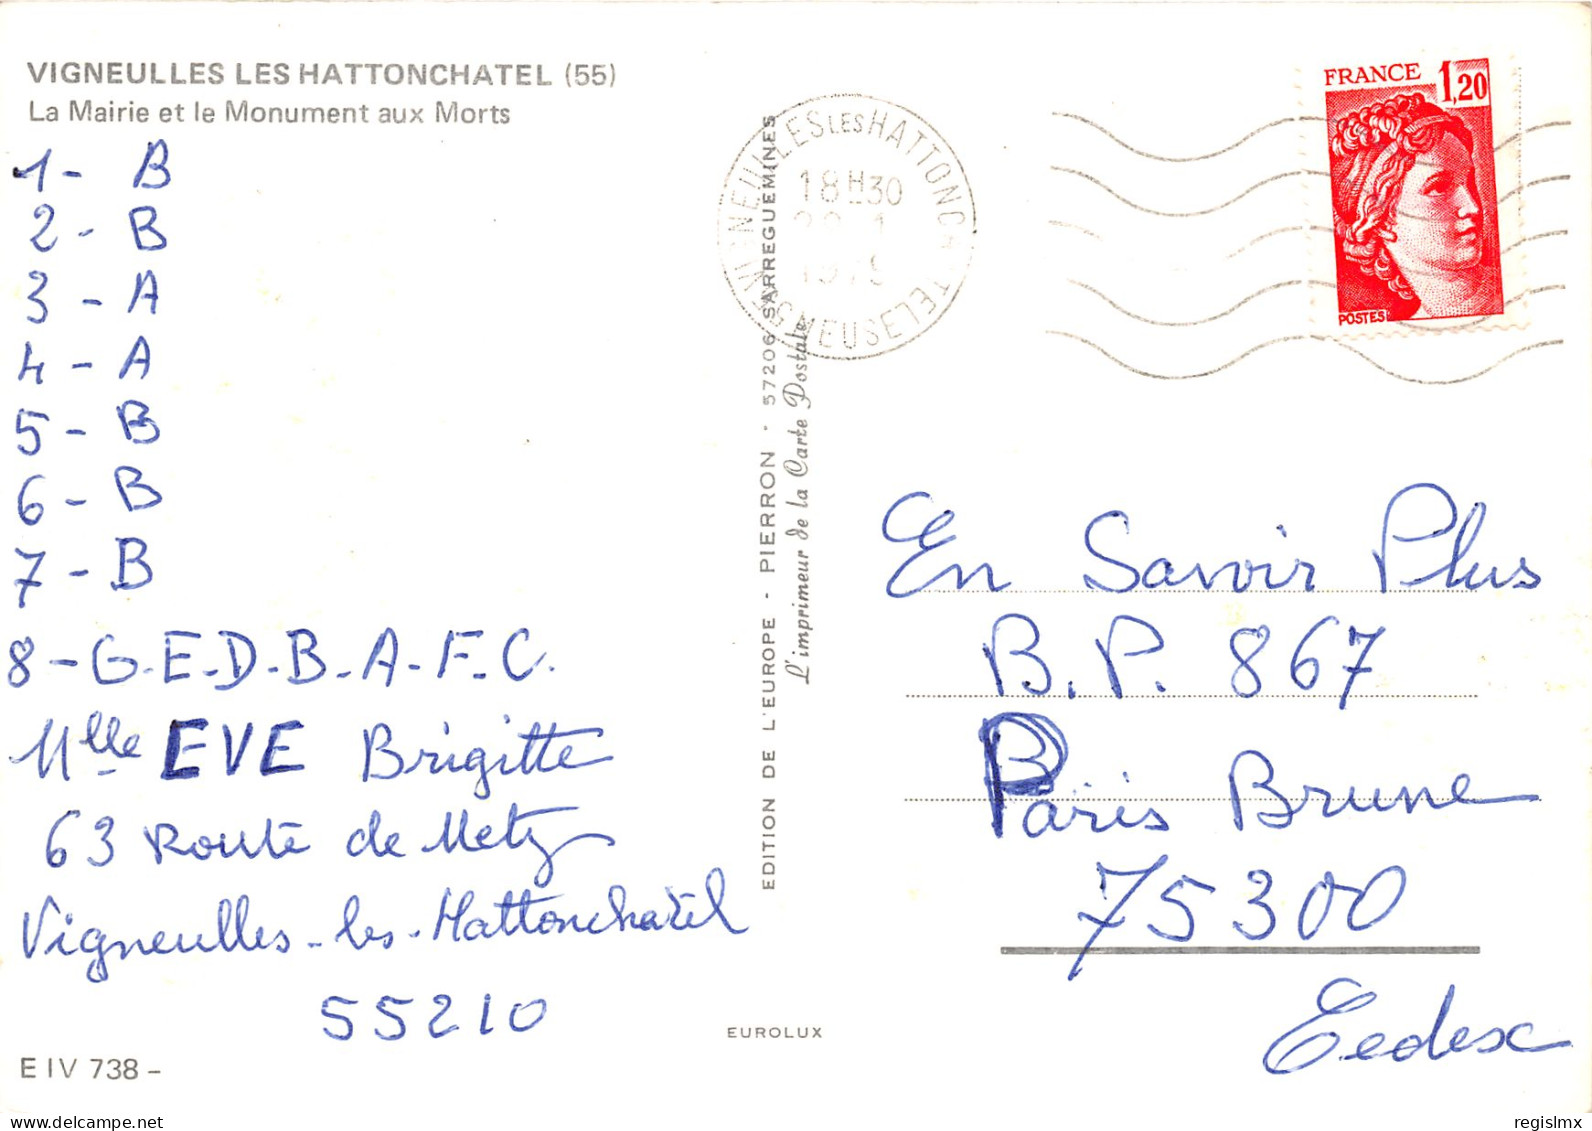 VIGNEULLES LES HATTONCHATEL (55)
La Mairie et le Monument aux Morts
1 - B
2 - B
3 - A
4 - A
5 - B
6 - B
7 - B
8 - G-E-D-B-A-F-C.
Mlle EVE Brigitte
63 Route de Metz
Vigneulles-les-Hattonchatel
55210
E IV 738 -
EDITION DE L'EUROPE - PIERRON - 57206 SARREGUEMINES
L'imprimeur de la Carte Postale
EUROLUX
VIGNEULLES LES HATTONCHATEL
18H30
1979
55 MEUSE
FRANCE 1,20
POSTES
En Savoir Plus
B.P. 867
Paris Brune
75300
Cedex
regislmx